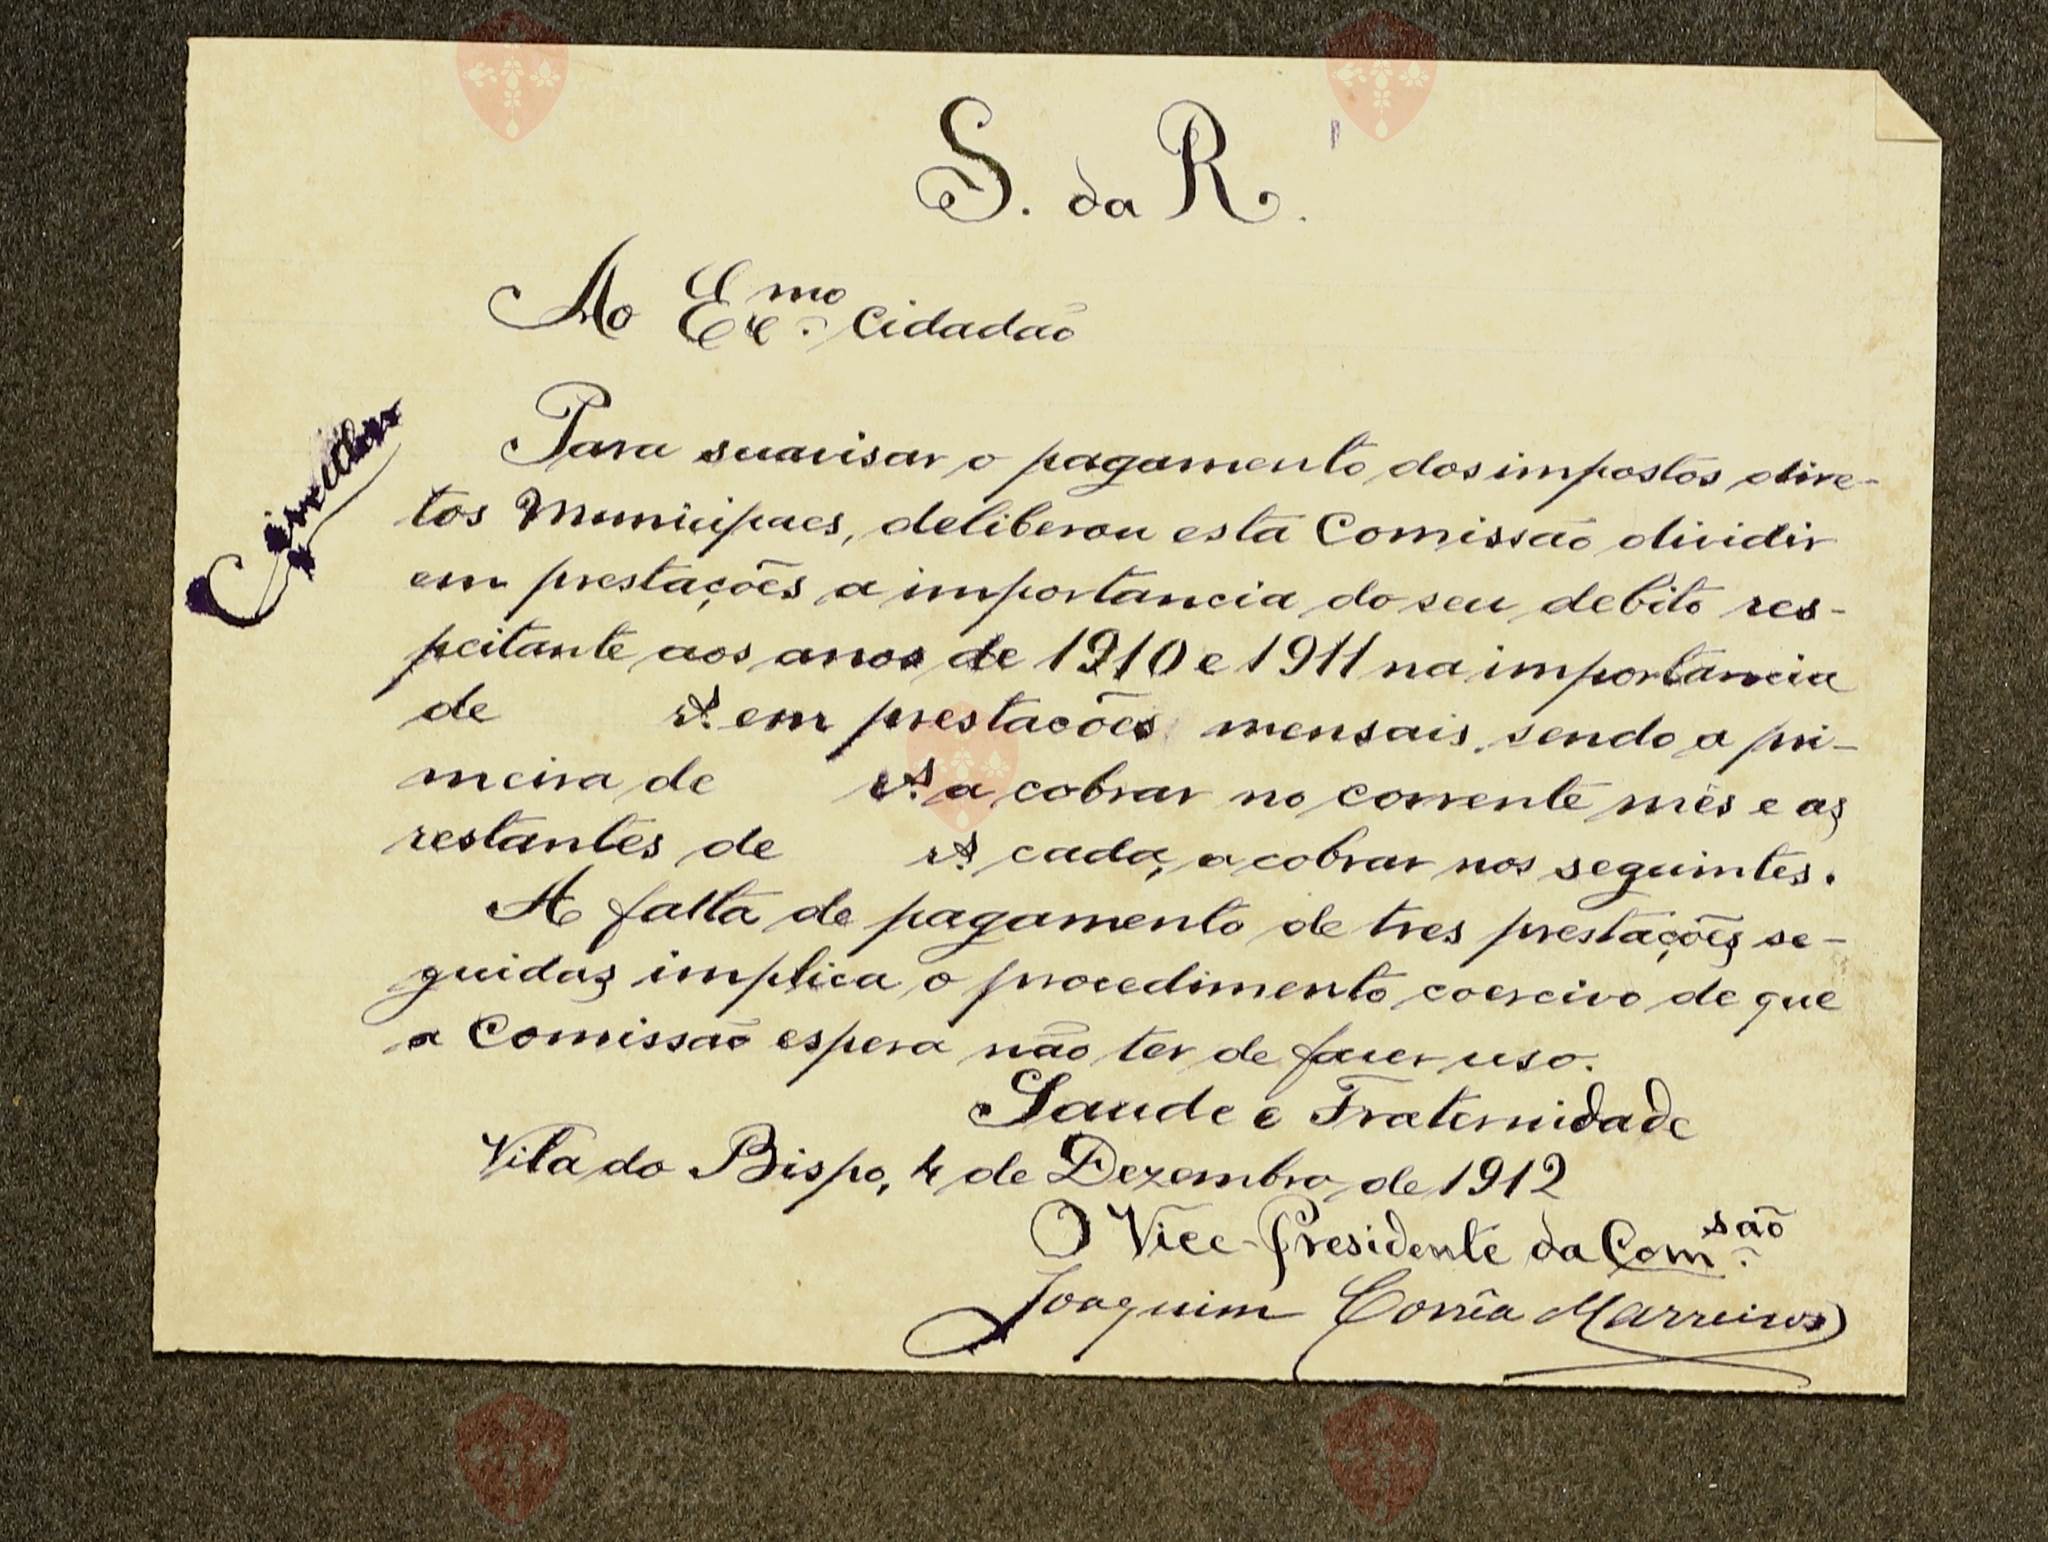 S. da R.
Ao Exc.mo Cidadão
Circular
Para suavisar o pagamento dos impostos dire-
tos Municipaes, deliberou esta Comissão dividir
em prestações a importancia do seu debito res-
peitante aos anos de 1910 e 1911 na importancia
de rs. em prestacões mensais, sendo a pri-
meira de rs. a cobrar no corrente mês e as
restantes de rs. cada, a cobrar nos seguintes.
A falta de pagamento de tres prestações se-
guidas implica o procedimento coercivo de que
a Comissão espera não ter de fazer uso.
Saude e Fraternidade
Vila do Bispo, 4 de Dezembro de 1912
O Vice-Presidente da Com.são
Joaquim Corrêa Marreiros